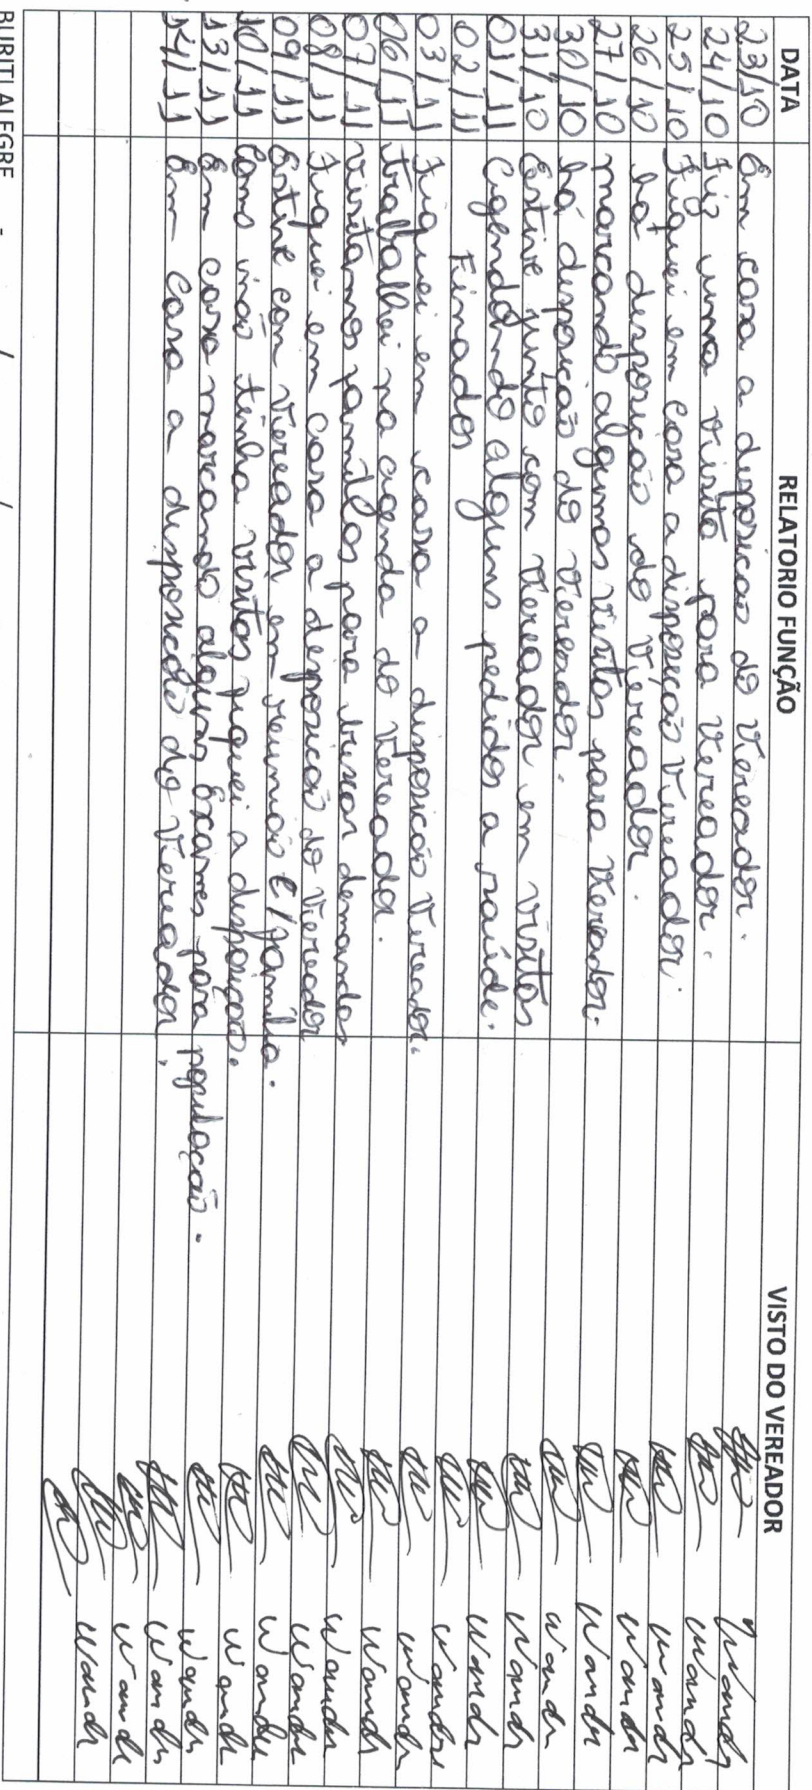 DATA RELATORIO FUNÇÃO VISTO DO VEREADOR
23/10 Em casa a disposicao do Vereador. Wandr
24/10 Fiz uma visita para Vereador. Wandr
25/10 Fiquei em casa a disposicão Vereador. Wandr
26/10 há desposicão do Vereador. Wandr
27/10 marcando algumas visitas para Vereador. Wandr
30/10 há disposicão do Vereador. Wandr
31/10 Estive junto com Vereador em visitas Wandr
01/11 Agendando alguns pedidos a saúde. Wandr
02/11 Finados Wandr
03/11 Fiquei em casa a disposicão Vereador. Wandr
06/11 trabalhei na agenda do Vereador. Wandr
07/11 visitamos familias para buscar demandas Wandr
08/11 Fiquei em casa a desposicão do Vereador Wandr
09/11 Estive con Vereador em reunião c/ família. Wandr
10/11 Como não tinha visitas fiquei a disposição. Wandr
13/11 Em casa marcando alguns Exames para população. Wandr
14/11 Em casa a disposicão do Vereador. Wandr
Wandr
Wandr
BURITI ALEGRE - / /